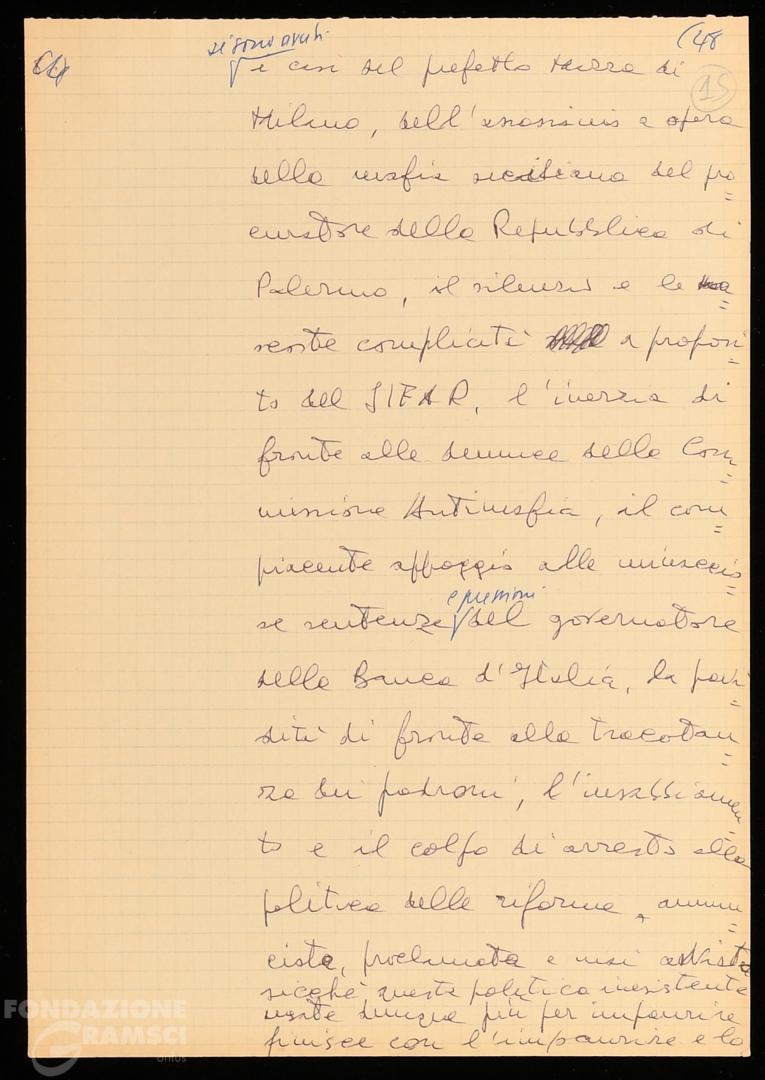 si sono avuti
(48
15
i casi del prefetto Mazza di
Milano, dell'assassinio a opera
della mafia siciliana del pro
curatore della Repubblica di
Palermo, il silenzio e le
complicità a proposi
to del SIFAR, l'inerzia di
fronte alle denunce della Com
missione Antimafia, il com
piacente appoggio alle minaccio
e pressioni
se sentenze del governatore
della Banca d'Italia, la pavi
dità di fronte alla tracotan
za dei padroni, l'insabbiamen
to e il colpo di arresto alla
politica delle riforme, annun
ciata, proclamata e mai
sicché questa politica inesistente
più per impaurire
finisce con l'impaurire e lo
FONDAZIONE
GRAMSCI
onlus